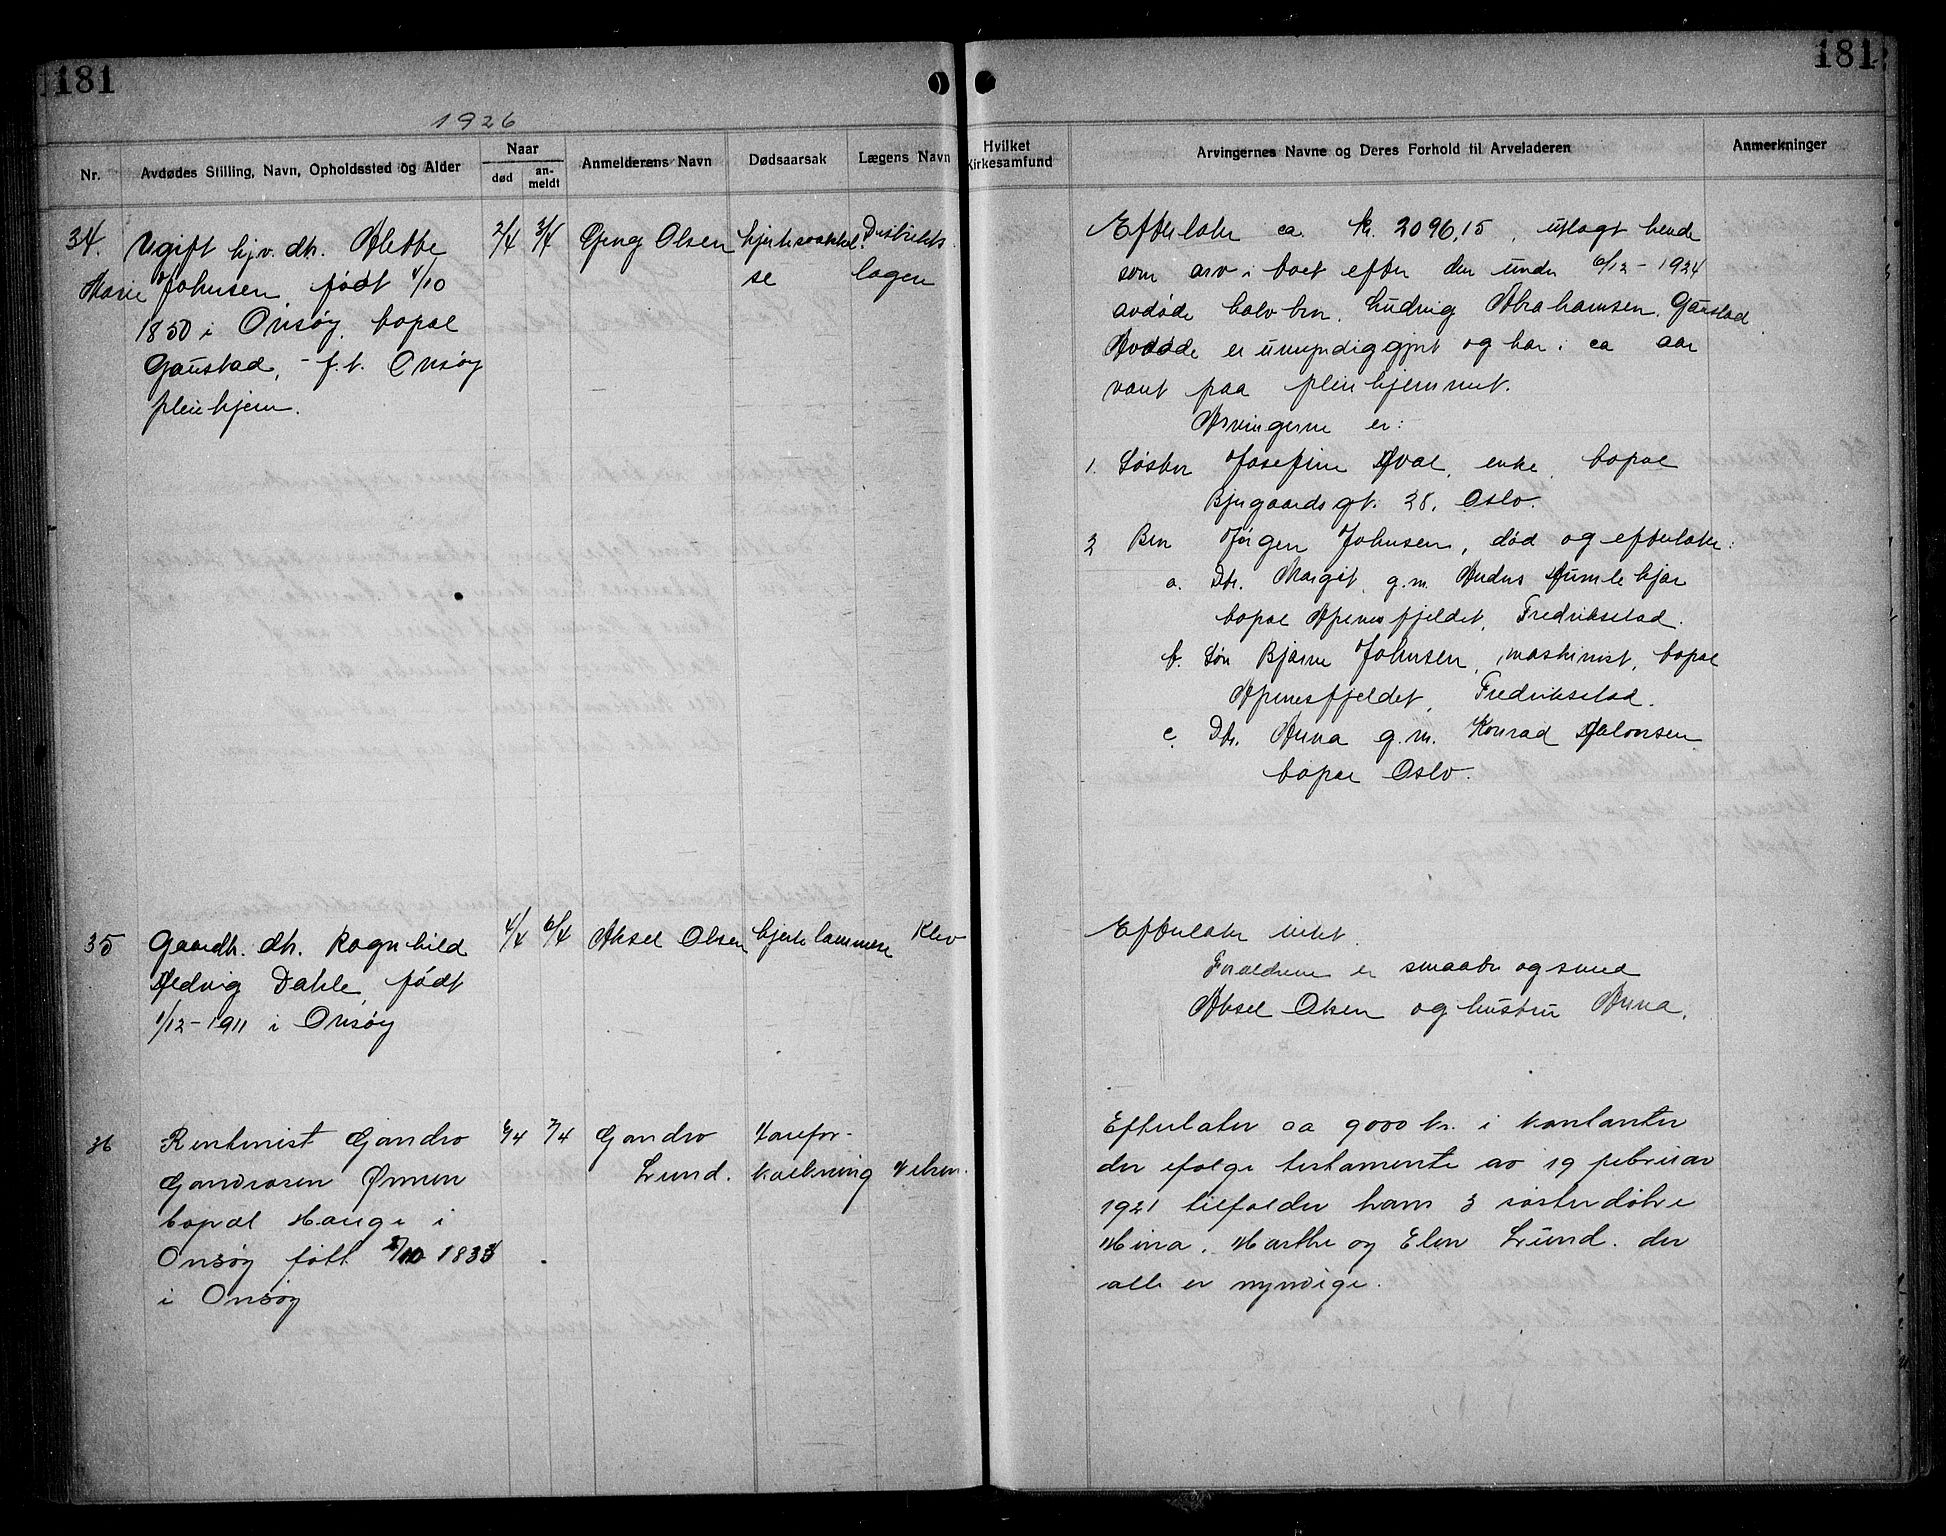 181
181
1926
Nr.
Avdødes Stilling, Navn, Opholdssted og Alder
Naar
død
an-
meldt
Anmelderens Navn
Dødsaarsak
Lægens Navn
Hvilket
Kirkesamfund
Arvingernes Navne og Deres Forhold til Arveladeren
Anmerkninger
34.
Ugift hjv. dtr. Alette
Marie Johnsen, født 4/10
1850 i Onsøy, bopal
Gaustad, - f.t. Onsøy
pleiehjem.
2/4
3/4
Olsen
hjertesvækkel-
se
Distrikts-
lægen
Efterlater ca. kr. 2096,15, utlagt hende
som arv i boet efter den under 6/12-1924
avdøde halvbror, Ludvig Abrahamsen, Gaustad.
Avdøde er umyndiggjort og har i ca aar
været paa pleiehjemmet.
Arvingerne er:
1. Søster Josefine Hval, enke, bopal
Bjergaardsgt. 28, Oslo.
2 Bror Jørgen Johnsen, død og efterlater:
a. Dtr. Margit, g.m. Anders Humlekjær
bopal Apenesfjeldet, Fredrikstad.
b. Søn Bjarne Johnsen, maskinist, bopal
Apenesfjeldet, Fredrikstad.
c. Dtr. Anna g.m. Konrad Halvorsen
bopal Oslo.
35
Gaardb. dtr. Ragnhild
Hedvig Dahle, født
1/12-1911 i Onsøy
4/4
6/4
Aksel Olsen
hjertelammelse
Klev
Efterlater intet.
Forældrene er smaabr. og smed
Aksel Olsen og hustru Anna.
36
Rentenist Gandro
Gandrosen Ørmen
bopal Hauge i
Onsøy født 1833
i Onsøy
6/4
7/4
Gandro
Lund.
Aarefor-
kalkning
Nilsen.
Efterlater ca 9000 kr. i kontanter
der ifølge testamente av 19 februar
1921 tilfalder hans 3 søsterdøtre
Mina, Marthe og Elen Lund. der
alle er myndige.